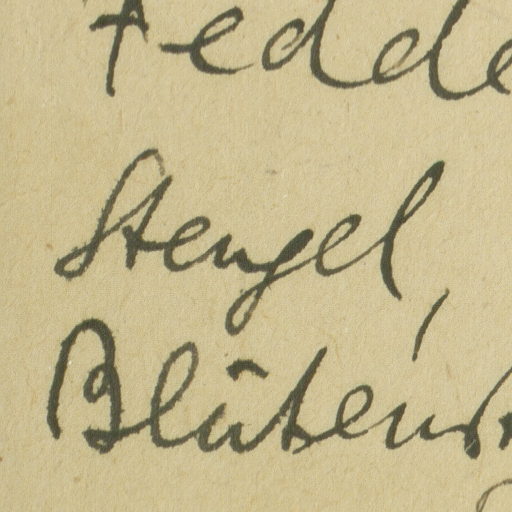 Fedde
Stengel,
Blütenst